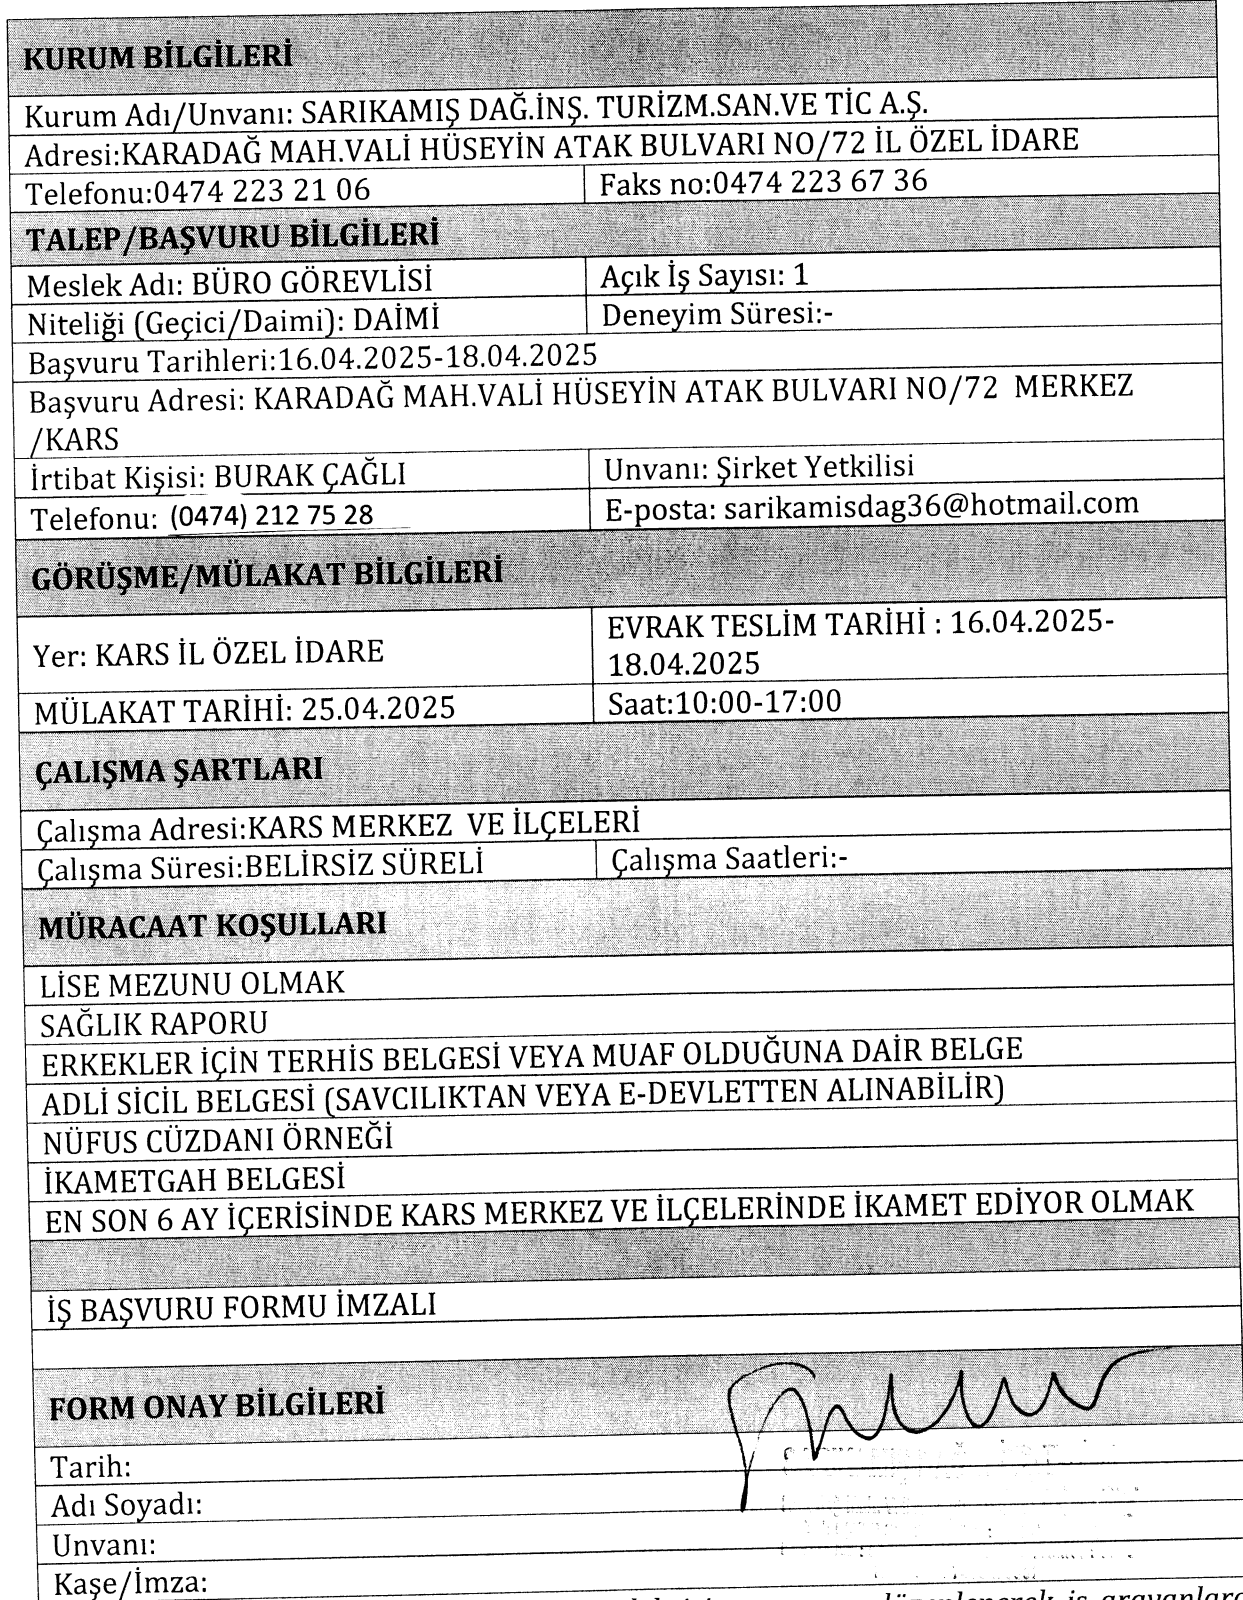 KURUM BİLGİLERİ
Kurum Adı/Unvanı: SARIKAMIŞ DAĞ.İNŞ. TURİZM.SAN.VE TİC A.Ş.
Adresi:KARADAĞ MAH.VALİ HÜSEYİN ATAK BULVARI NO/72 İL ÖZEL İDARE
Telefonu:0474 223 21 06 Faks no:0474 223 67 36
TALEP/BAŞVURU BİLGİLERİ
Meslek Adı: BÜRO GÖREVLİSİ Açık İş Sayısı: 1
Niteliği (Geçici/Daimi): DAİMİ Deneyim Süresi:-
Başvuru Tarihleri:16.04.2025-18.04.2025
Başvuru Adresi: KARADAĞ MAH.VALİ HÜSEYİN ATAK BULVARI NO/72 MERKEZ
/KARS
İrtibat Kişisi: BURAK ÇAĞLI Unvanı: Şirket Yetkilisi
Telefonu: (0474) 212 75 28 E-posta: sarikamisdag36@hotmail.com
GÖRÜŞME/MÜLAKAT BİLGİLERİ
Yer: KARS İL ÖZEL İDARE
EVRAK TESLİM TARİHİ : 16.04.2025-
18.04.2025
MÜLAKAT TARİHİ: 25.04.2025 Saat:10:00-17:00
ÇALIŞMA ŞARTLARI
Çalışma Adresi:KARS MERKEZ VE İLÇELERİ
Çalışma Süresi:BELİRSİZ SÜRELİ Çalışma Saatleri:-
MÜRACAAT KOŞULLARI
LİSE MEZUNU OLMAK
SAĞLIK RAPORU
ERKEKLER İÇİN TERHİS BELGESİ VEYA MUAF OLDUĞUNA DAİR BELGE
ADLİ SİCİL BELGESİ (SAVCILIKTAN VEYA E-DEVLETTEN ALINABİLİR)
NÜFUS CÜZDANI ÖRNEĞİ
İKAMETGAH BELGESİ
EN SON 6 AY İÇERİSİNDE KARS MERKEZ VE İLÇELERİNDE İKAMET EDİYOR OLMAK
İŞ BAŞVURU FORMU İMZALI
FORM ONAY BİLGİLERİ
Tarih:
Adı Soyadı:
Unvanı:
Kaşe/İmza:
düzenlenerek iş arayanlara